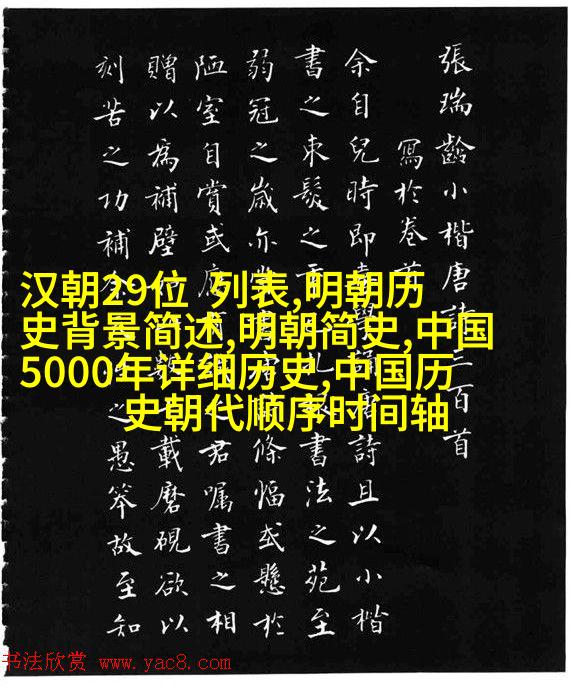 汉朝29位 列表,明朝历
史背景简述,明朝简史,中国
5000年详细历史,中国历
史朝代顺序时间轴
張瑞齡小楷唐詩三百首
寫於卷前
余自兒時即學誦唐詩且以小楷
書之束髮之書法之苑至
弱冠之歲亦條幅或懸於
陋室自賞或君囑書之相
贈以為補壁載磨硯欲以
刻苦之功補之愚笨故至知
书法欣赏 www.yac8.com